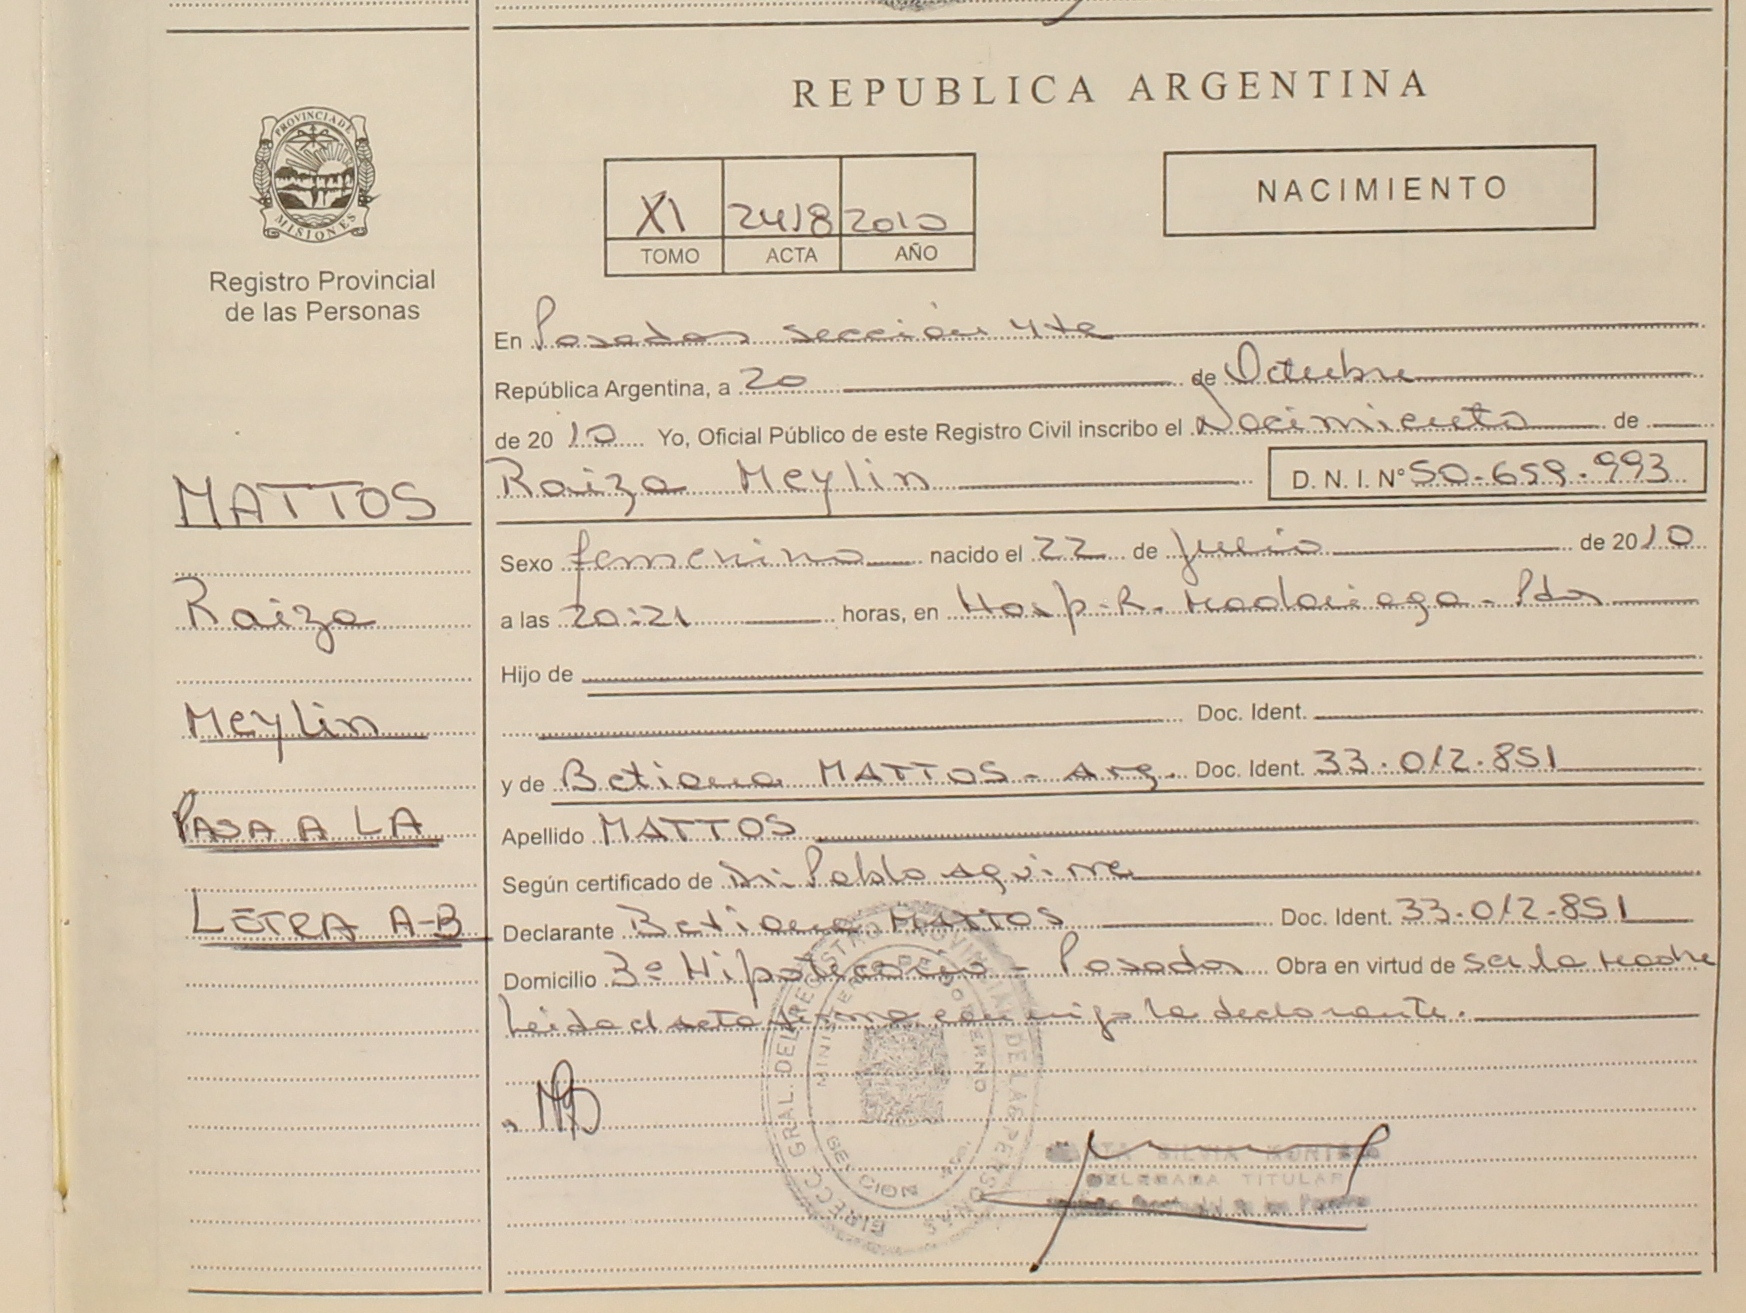 REPUBLICA ARGENTINA
PROVINCIA DE MISIONES
Registro Provincial
de las Personas
XI 2418 2010
TOMO ACTA AÑO
NACIMIENTO
En Posadas sección 4ta
República Argentina, a 20 de Octubre
de 2010 Yo, Oficial Público de este Registro Civil inscribo el Nacimiento de
Raiza Meylin D. N. I. N° 50.659.993
MATTOS
Sexo femenino nacido el 22 de Julio de 2010
Raiza
a las 20:21 horas, en Hosp. R. Madariaga - Pdas
Hijo de
Meylin
Doc. Ident.
y de Betiana MATTOS - Arg. Doc. Ident. 33.012.851
PASA A LA
Apellido MATTOS
Según certificado de Dr. Pablo Aguirre
LETRA A-B
Declarante Betiana MATTOS Doc. Ident. 33.012.851
Domicilio 3° Hipotecario - Posadas Obra en virtud de ser la madre
Leida el acta firma conmigo la declarante.
DIRECC. GRAL. DEL REGISTRO PROVINCIAL DE LAS PERSONAS
MINISTERIO DE GOBIERNO
SILVIA
DELEGADA TITULAR